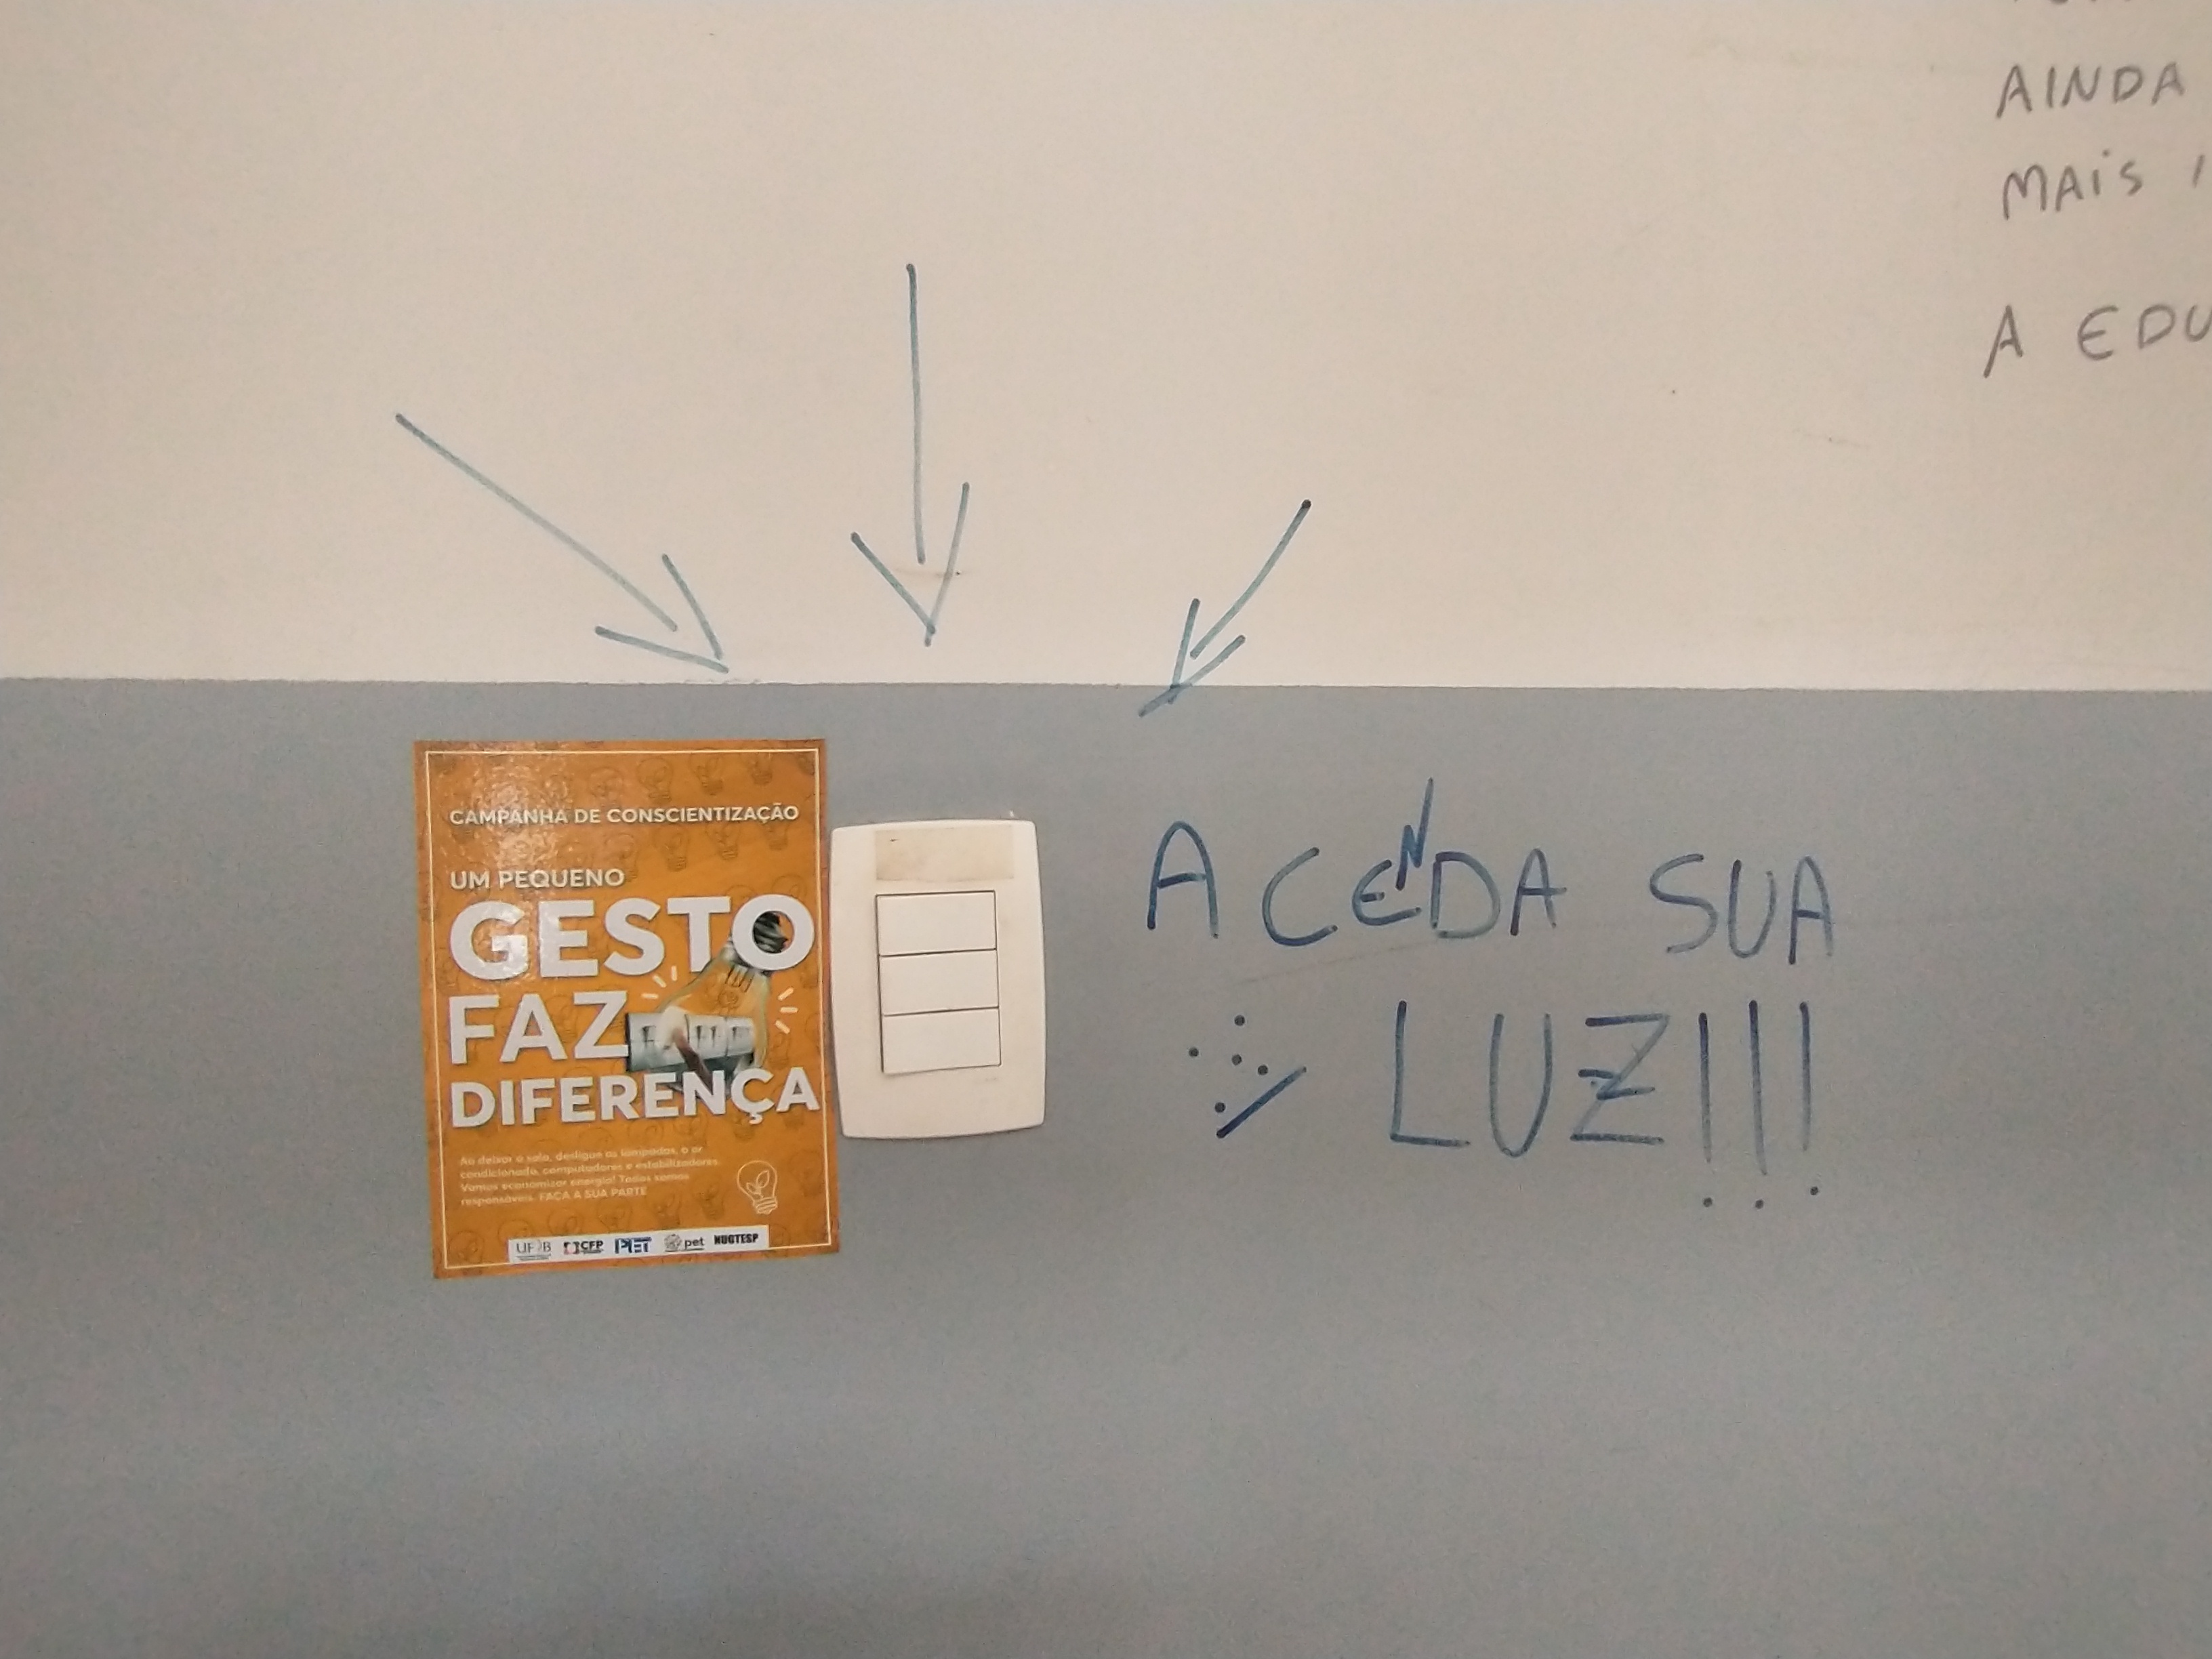 AINDA
MAIS
A EDU
CAMPANHA DE CONSCIENTIZAÇÃO
UM PEQUENO
GESTO
FAZ
DIFERENÇA
Ao deixar a sala, desligue as lâmpadas, o ar
condicionado, computadores e estabilizadores.
Vamos economizar energia! Todos somos
responsáveis. FAÇA A SUA PARTE
UFOB CFP PET pet NUGTESP
ACENDA SUA
LUZ!!!